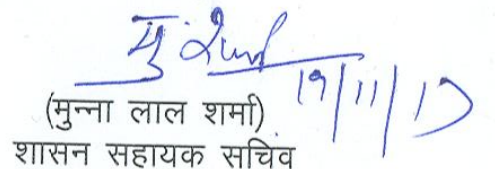 मु. शर्मा
19/11/17
(मुन्ना लाल शर्मा)
शासन सहायक सचिव